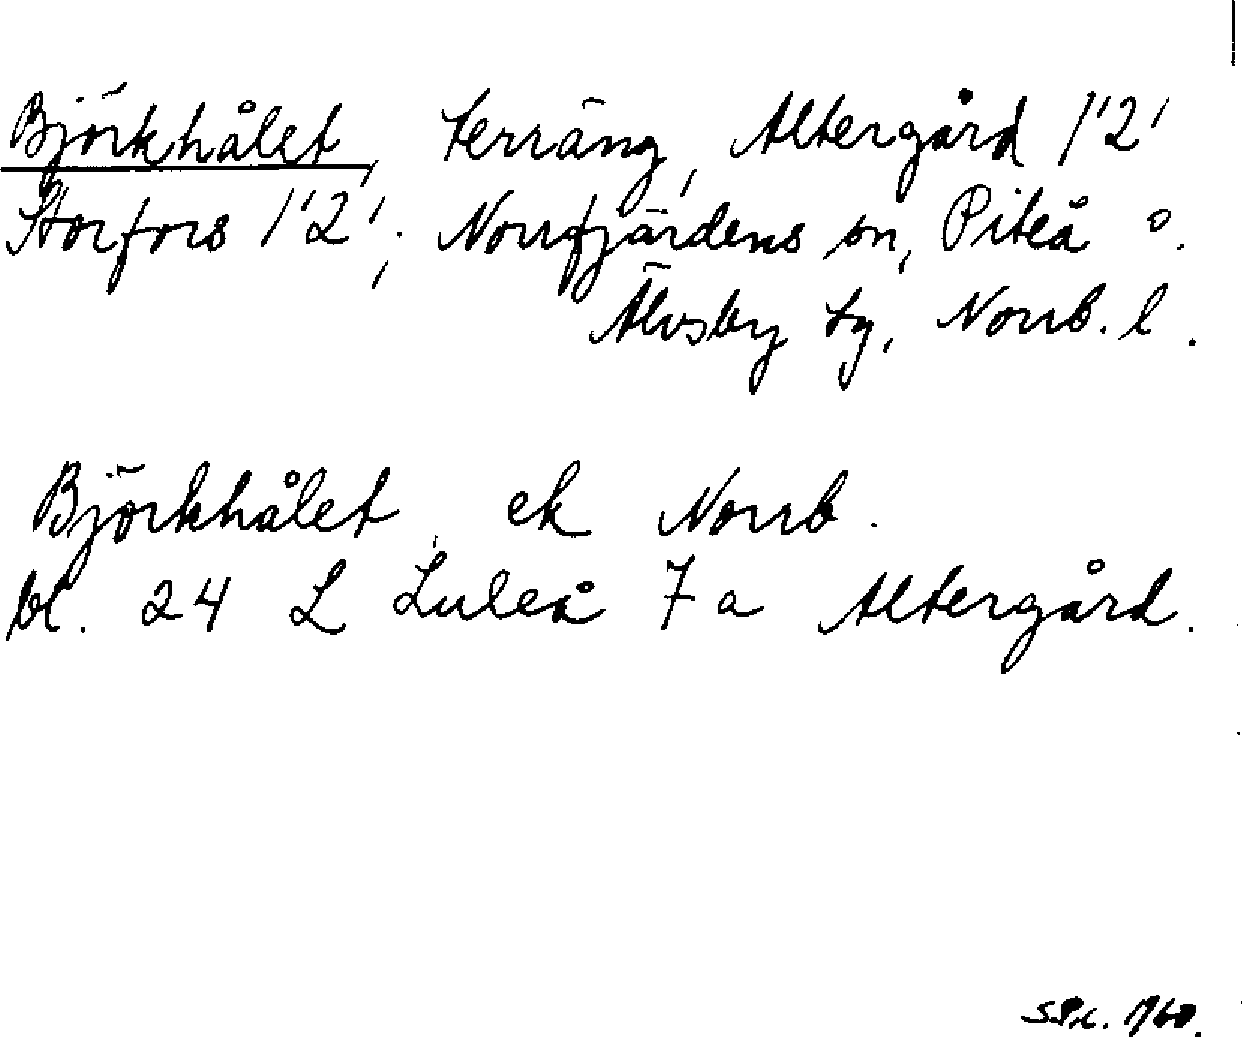 Björkhålet, terräng, Altergård 1'2'
Storfors 1'2'; Norrfjärdens sn, Piteå o.
Älvsby tg, Norrb. l.
Björkhålet, ek Norrb.
bl. 24 L Luleå 7a Altergård.
1960.